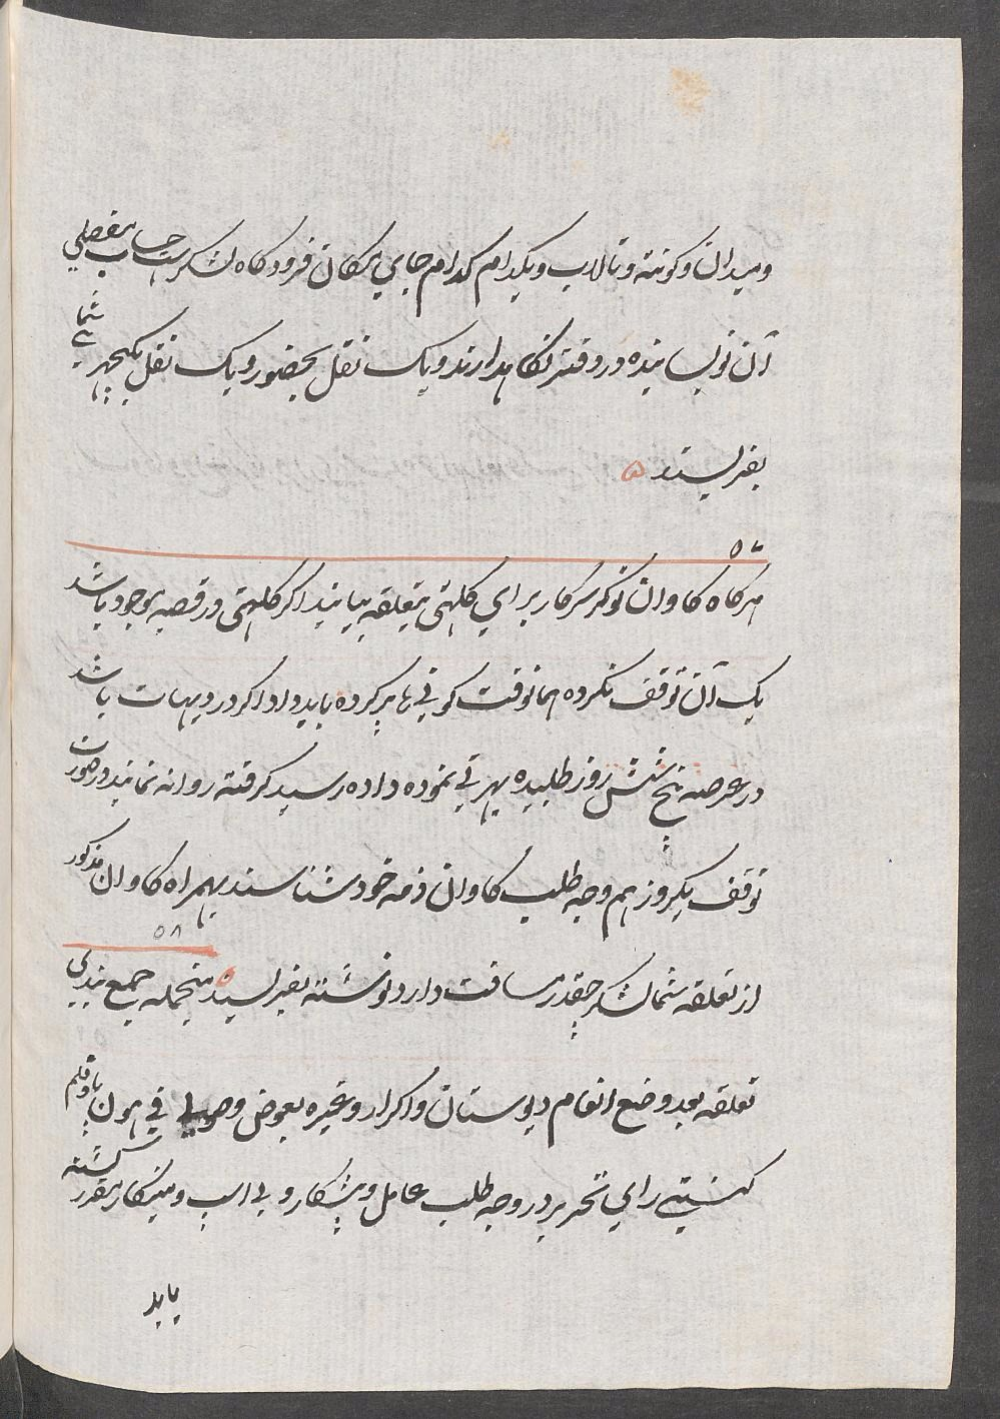 ومیدان و کونته و تالاب و یکدام کدام جای مکان فرودکاه لشکر است حساب مفصلی
آن نویسانیده در دفتر نکاهدارند و یک نقل بحضور و یک نقل بکچهری شمای
بفرستند ۵
۵۷
هرکاه کاوان نوکر سرکار برای کلهتی بتعلقه بیایند اکر کلهتی در قصبه موجود باشد
یک آن توقف نکرده همانوقت کونی ها پر کرده باید داد اکر در دیهات باشد
در عرصه پنج شش روز طلبیده بهرتی نموده داده رسید کرفته روانه نمایند در صورت
توقف یکروز هم وجه طلب کاوان ذمه خود شناسند همراه کاوان مذکور
۵۸
از تعلقه شما لشکر چقدر مسافت دارد نوشته بفرستید ۵ منجمله جمع بندی
تعلقه بعد وضع انعام دیوستان و اکرار وغیره بعوض وصولی فی هون پاو فلم
کنتی رای تحریر در وجه طلب عامل و پیشکار و بی اسپ و مینکار مقرر کشته
یابد